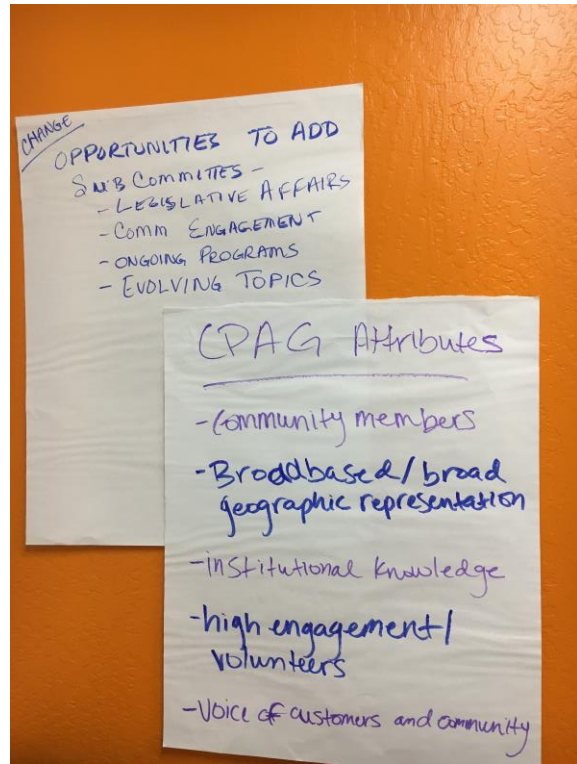 CHANGE
OPPORTUNITIES TO ADD
SUB COMMITTES -
- LEGISLATIVE AFFAIRS
- COMM ENGAGEMENT
- ONGOING PROGRAMS
- EVOLVING TOPICS
CPAG Attributes
- Community members
- Broadbased / broad
geographic representation
- institutional knowledge
- high engagement /
volunteers
- Voice of customers and community